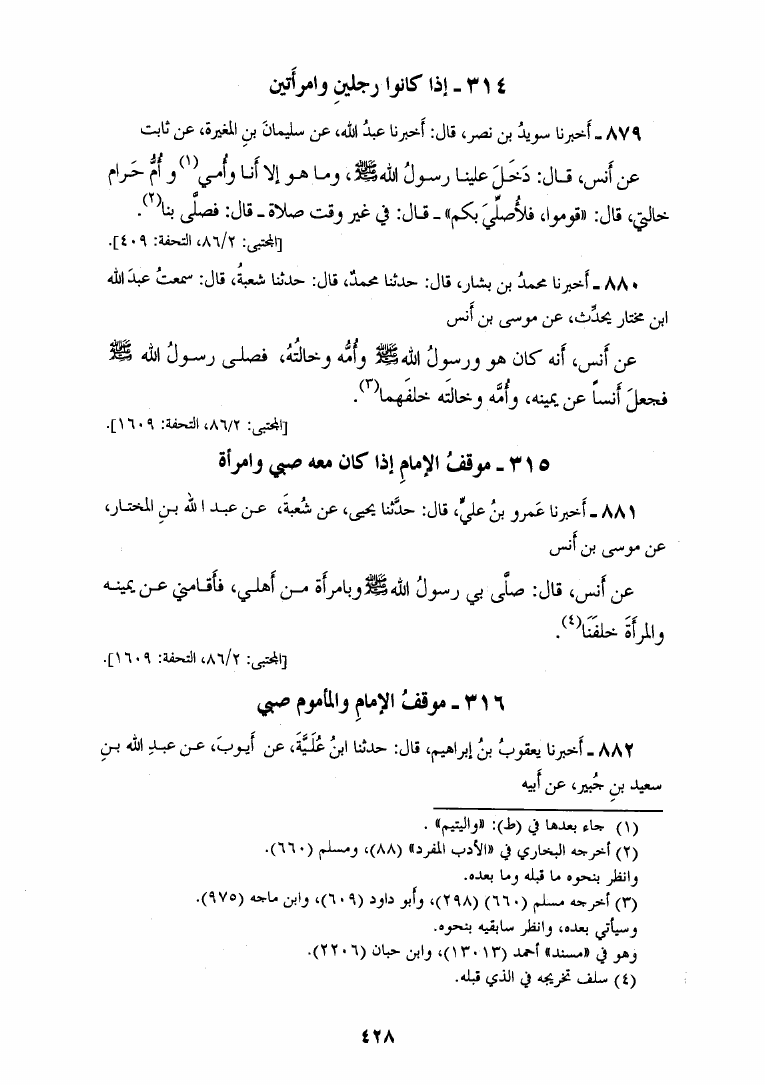 ٣١٤ ـ إذا كانوا رجلينِ وامرأَتين
٨٧٩ ـ أَخبرنا سويدُ بن نصر، قال: أَخبرنا عبدُ الله، عن سليمانَ بنِ المغيرة، عن ثابت
عن أَنس، قال: دَخَلَ علينا رسولُ اللهﷺ، وما هو إلا أَنا وأُمي(١) و أُمُّ حَرام
خالتي، قال: «قوموا، فلأُصلِّيَ بكم» ـ قال: في غير وقت صلاة ـ قال: فصلَّى بنا(٢).
[المجتبى: ٨٦/٢، التحفة: ٤٠٩].
٨٨٠ ـ أَخبرنا محمدُ بن بشار، قال: حدثنا محمدٌ، قال: حدثنا شعبةُ، قال: سمعتُ عبدَ الله
ابن مختار يحدِّث، عن موسى بن أَنس
عن أَنس، أَنه كان هو ورسولُ اللهﷺ وأُمُّه وخالتُهُ، فصلى رسولُ الله ﷺ
فجعلَ أَنساً عن يمينه، وأُمَّه وخالتَه خلفَهما(٣).
[المجتبى: ٨٦/٢، التحفة: ١٦٠٩].
٣١٥ ـ موقفُ الإمامِ إذا كان معه صبي وامرأة
٨٨١ ـ أَخبرنا عَمرو بنُ عليٍّ، قال: حدَّثنا يحيى، عن شُعبةَ، عن عبد الله بنِ المختار،
عن موسى بن أَنس
عن أَنس، قال: صلَّى بي رسولُ اللهﷺ وبامرأَة من أَهلي، فأَقامني عن يمينه
والمرأَةَ خلفَنَا(٤).
[المجتبى: ٨٦/٢، التحفة: ١٦٠٩].
٣١٦ ـ موقفُ الإمامِ والمأموم صبي
٨٨٢ ـ أَخبرنا يعقوبُ بنُ إبراهيم، قال: حدثنا ابنُ عُلَيَّةَ، عن أَيوبَ، عن عبدِ الله بنِ
سعيد بنِ جُبير، عن أَبيه
(١) جاء بعدها في (ط): «واليتيم» .
(٢) أخرجه البخاري في «الأدب المفرد» (٨٨)، ومسلم (٦٦٠).
وانظر بنحوه ما قبله وما بعده.
(٣) أخرجه مسلم (٦٦٠) (٢٩٨)، وأبو داود (٦٠٩)، وابن ماجه (٩٧٥).
وسيأتي بعده، وانظر سابقيه بنحوه.
وهو في «مسند» أحمد (١٣٠١٣)، وابن حبان (٢٢٠٦).
(٤) سلف تخريجه في الذي قبله.
٤٢٨